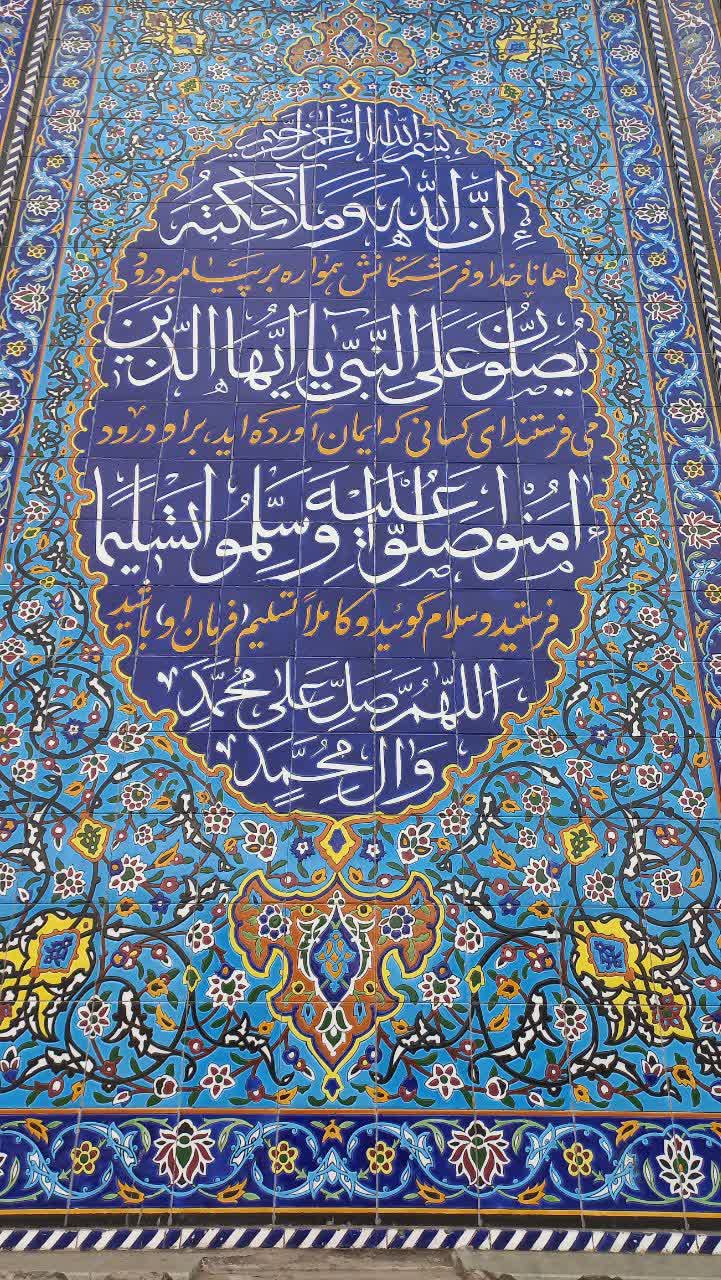 بسم الله الرحمن الرحیم
إِنَّ اللّٰهَ وَمَلآئِکَتَهُ
همانا خدا و فرشتگانش همواره بر پیامبر درود
یُصَلُّونَ عَلَی النَّبیِّ یا اَیُّهَا الَّذینَ
می فرستند ای کسانی که ایمان آورده اید، بر او درود
ءامَنُوا صَلُّوا عَلَیْهِ وَسَلِّمُوا تَسْلیمًا
فرستید و سلام گوئید و کاملاً تسلیم (فرمان او) باشید
اَللّٰهُمَّ صَلِّ عَلی مُحَمَّدٍ
وَ الِ مُحَمَّدٍ